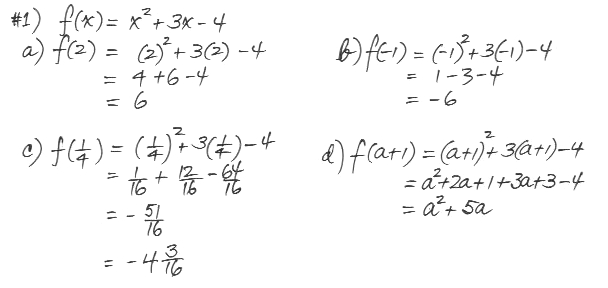 #1) f(x) = x² + 3x - 4
a) f(2) = (2)² + 3(2) - 4
= 4 + 6 - 4
= 6
b) f(-1) = (-1)² + 3(-1) - 4
= 1 - 3 - 4
= -6
c) f(1/4) = (1/4)² + 3(1/4) - 4
= 1/16 + 12/16 - 64/16
= - 51/16
= -4 3/16
d) f(a+1) = (a+1)² + 3(a+1) - 4
= a² + 2a + 1 + 3a + 3 - 4
= a² + 5a